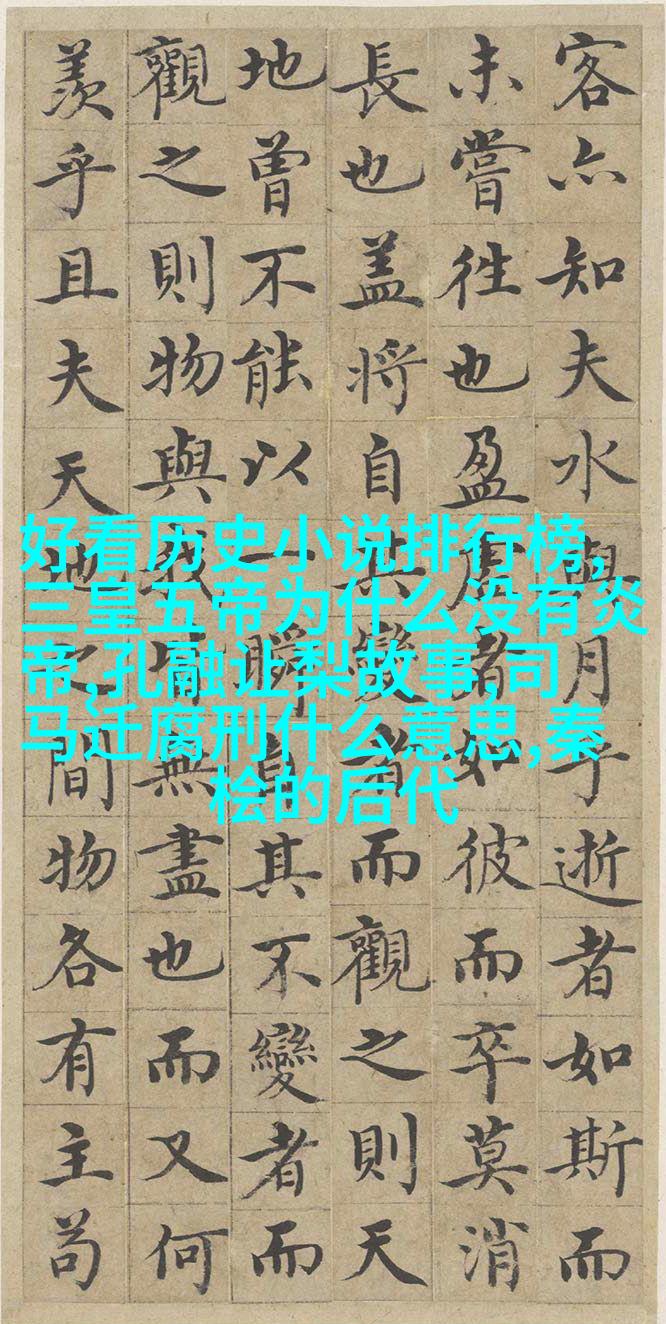 客亦知夫水與月乎逝者如斯而
未嘗徃也盈虛者如彼而卒莫消
長也盖將自其變者而觀之則天
地曾不能以一瞬自其不變者而
觀之則物與我皆無盡也而又何
羨乎且夫天地之間物各有主苟
好看历史小说排行榜,
三皇五帝为什么没有炎
帝,孔融让梨故事,司
马迁腐刑什么意思,秦
桧的后代